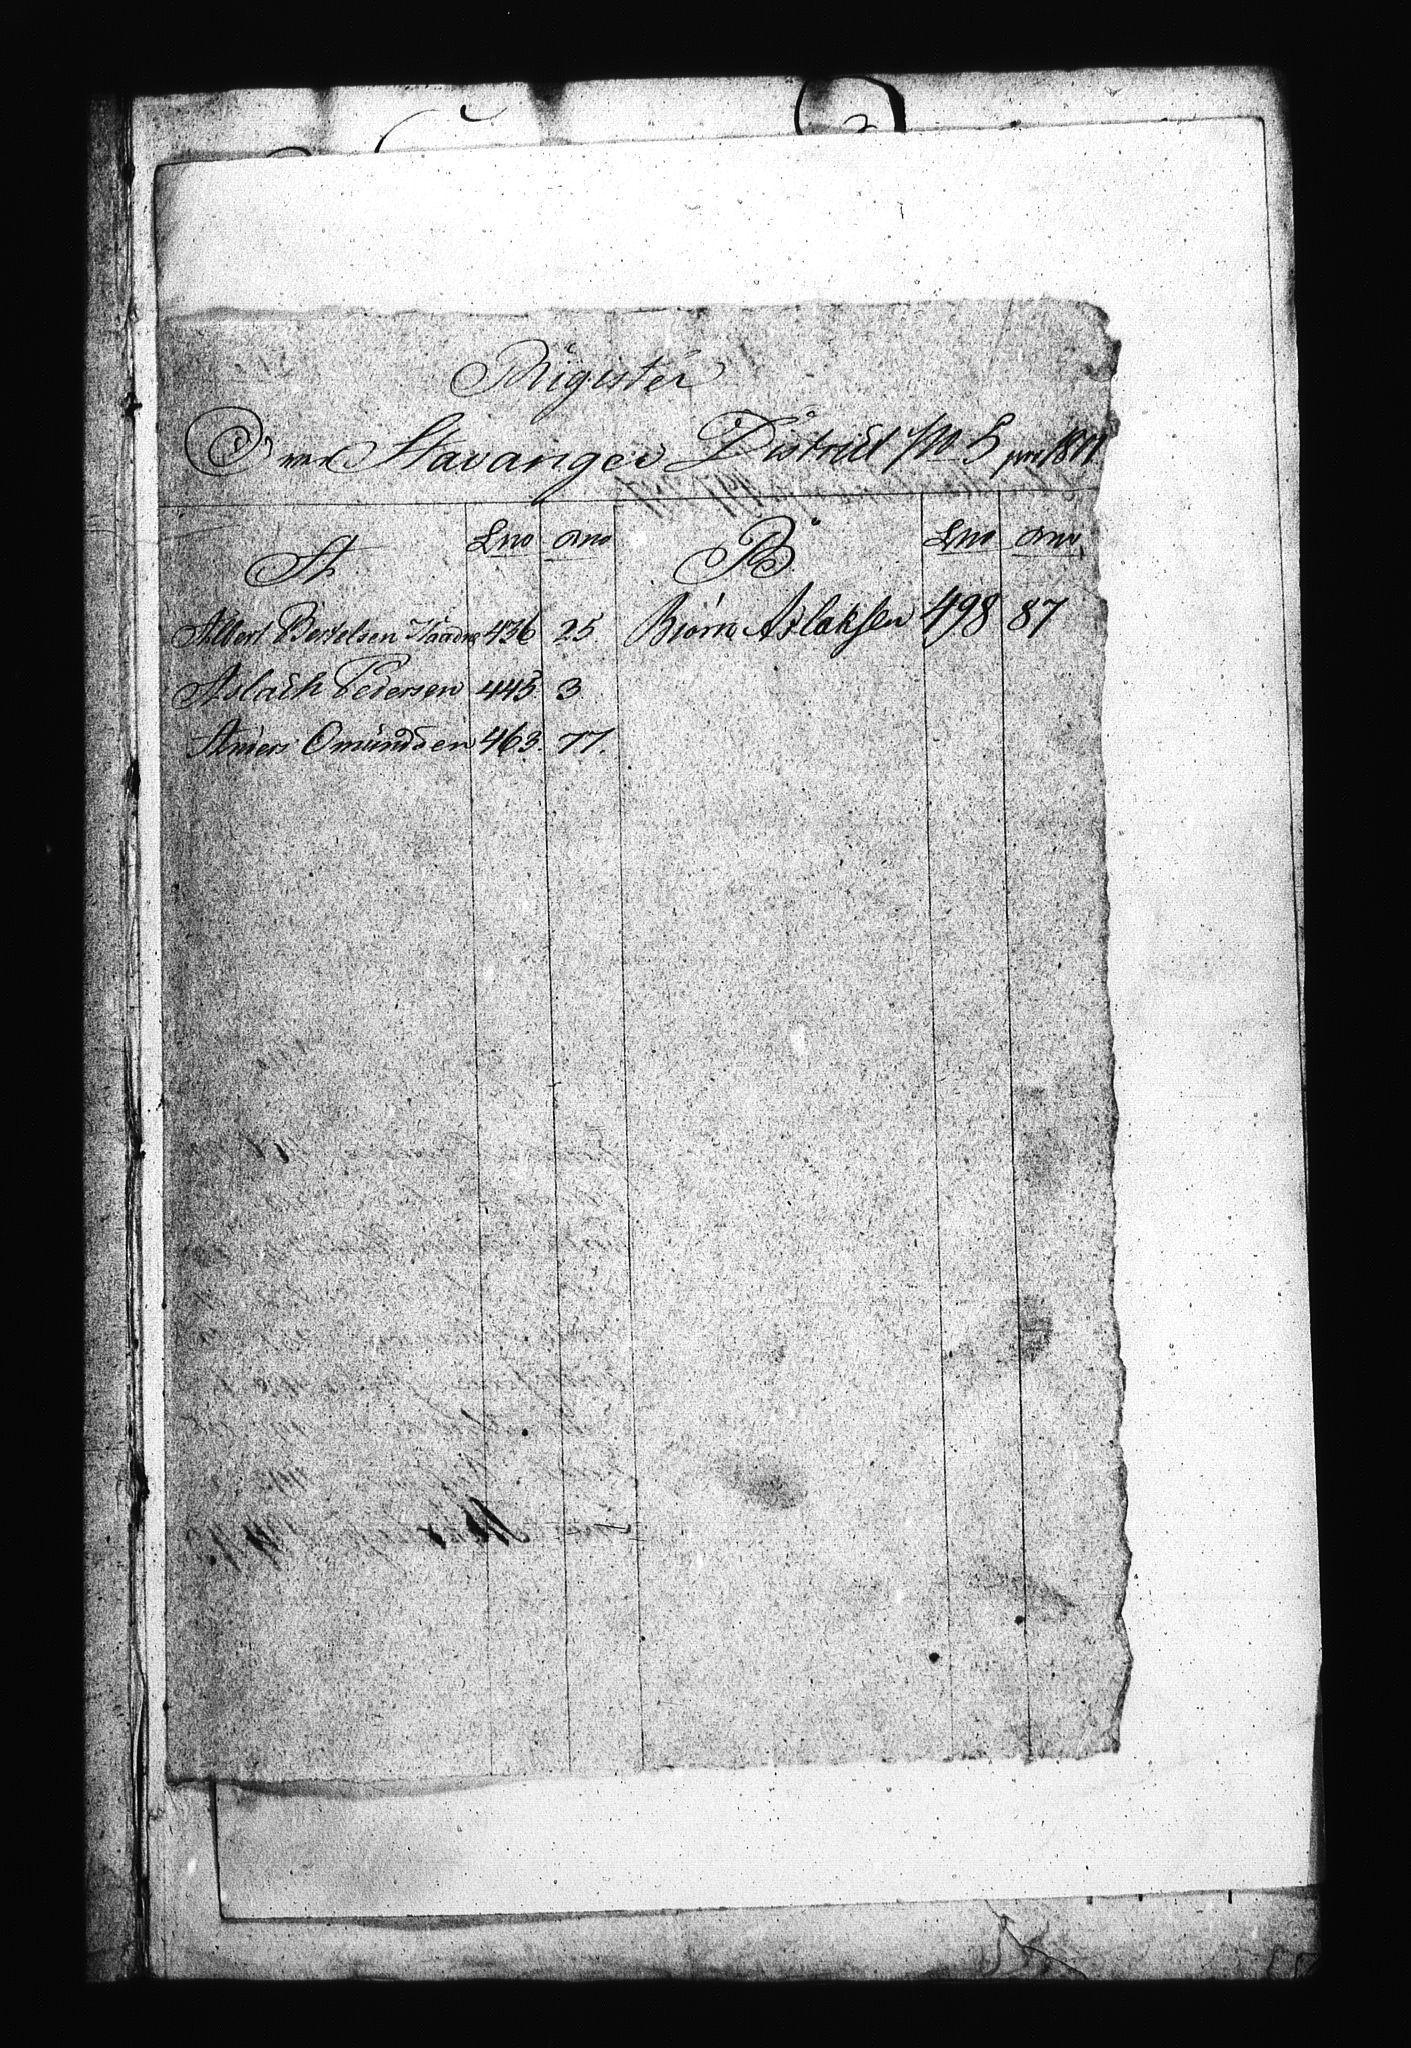 Register
Over Stavanger District No 5 pro 1801
A. Lno ono B. Lno ono
Albert Bertelsen 436 25 Biørn Aslaksen 498 87
Aslach Pedersen 445. 3
Anders Omundsen 463. 77.